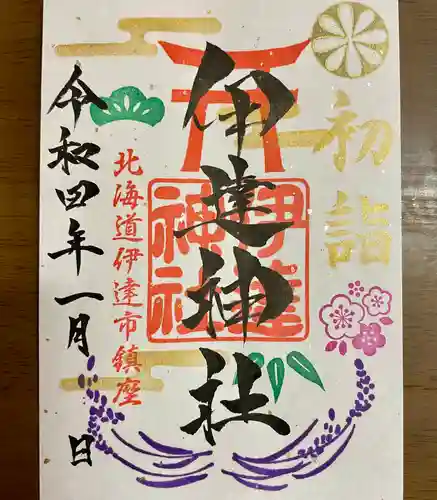 初詣
伊達神社
伊達神社
北海道伊達市鎮座
令和四年一月 日